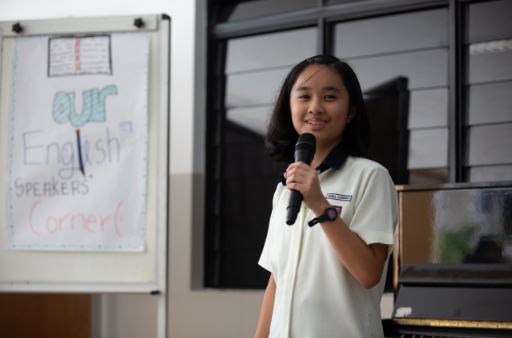 our
English
SPEAKERS'
Corner!